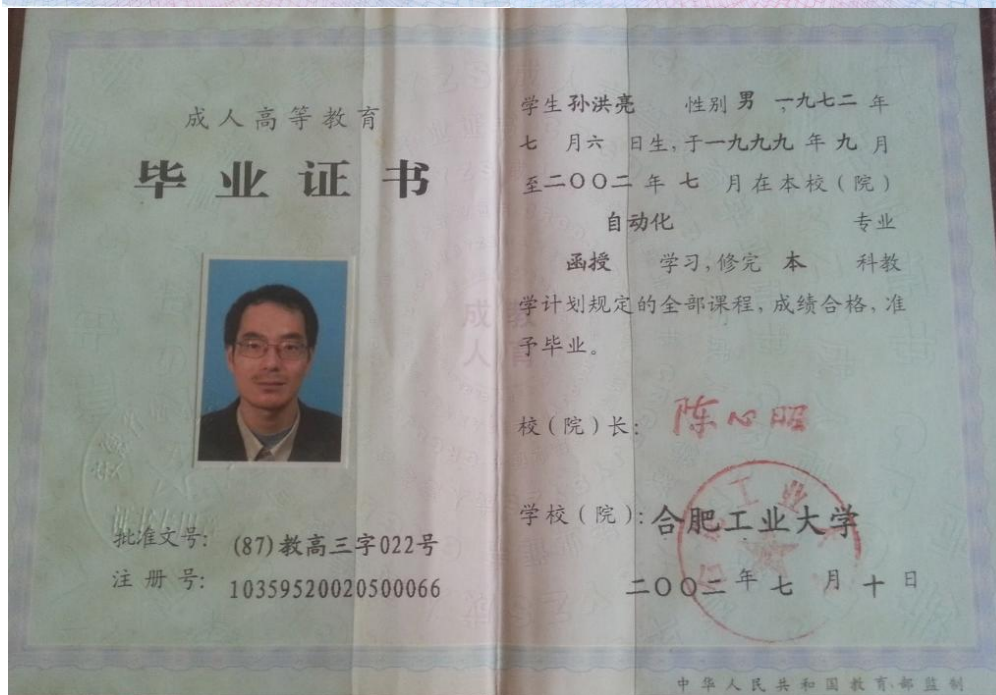 成人高等教育
毕业证书
批准文号: (87)教高三字022号
注册号: 103595200205​00066
学生 孙洪亮 性别 男 ,一九七二 年
七 月六 日生,于一九九九 年 九 月
至二〇〇二 年 七 月在本校(院)
自动化 专业
函授 学习,修完 本 科教
学计划规定的全部课程,成绩合格,准
予毕业。
校(院)长: 陈心昭
学校(院): 合肥工业大学
二〇〇二 年 七 月 十 日
中华人民共和国教育部监制
成教
人育